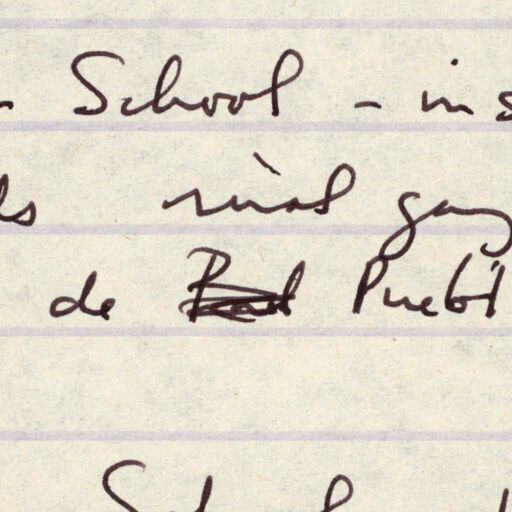 - School - ins
ls rival gang
de Puebl
School